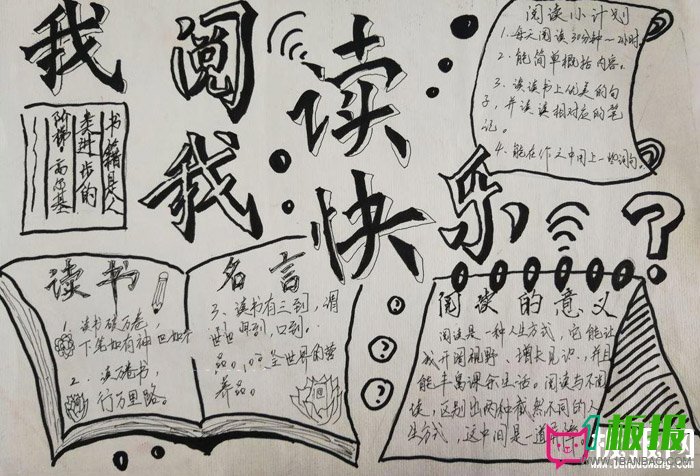 我阅读
我快乐
书籍是人
类进步的
阶梯—高尔基
阅读小计划
1、每天阅读30分钟~2小时
2、能简单概括内容。
3、读读书上优美的句
子,并读读相对应的笔
记。
4、能在作文中用上一些词句。
读书
名言
1、读书破万卷,
下笔如有神
2、读万卷书,
行万里路。
3、读书有三到,谓
眼到,口到。
全世界的营
养品。
阅读的意义
阅读是一种人生方式,它能让
我开阔视野、增长见识、并且
能丰富课余生活。阅读与不阅
读,区别出两种截然不同的人
生方式,这中间是一道
板报
WWW.1BANBAO.COM